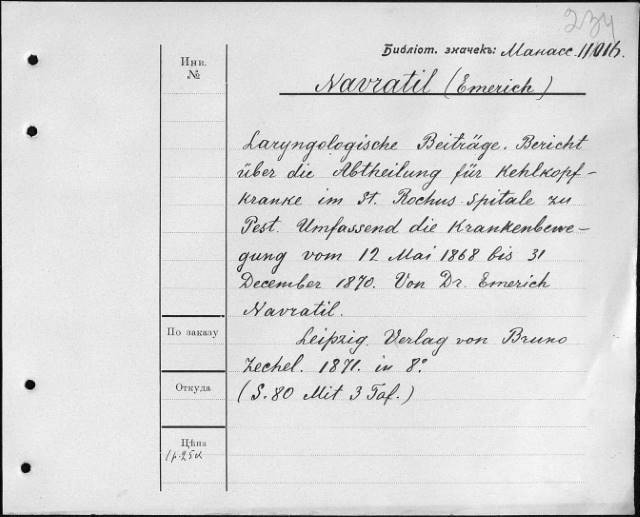 234
Библіот. значекъ: Манасс. 11016.
Инв.
№
Navratil (Emerich)
Laryngologische Beiträge. Bericht
über die Abtheilung für Kehlkopf-
kranke im St. Rochus Spitale zu
Pest. Umfassend die Krankenbewe-
gung vom 12 Mai 1868 bis 31
December 1870. Von Dr. Emerich
Navratil.
По заказу
Leipzig. Verlag von Bruno
Zechel. 1871. in 8º
Откуда
(S. 80 Mit 3 Taf.)
Цѣна
1 р. 25 к